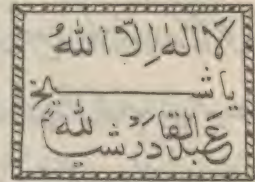 لا اله الا الله
يا شيخ
عبد القادر شيا لله